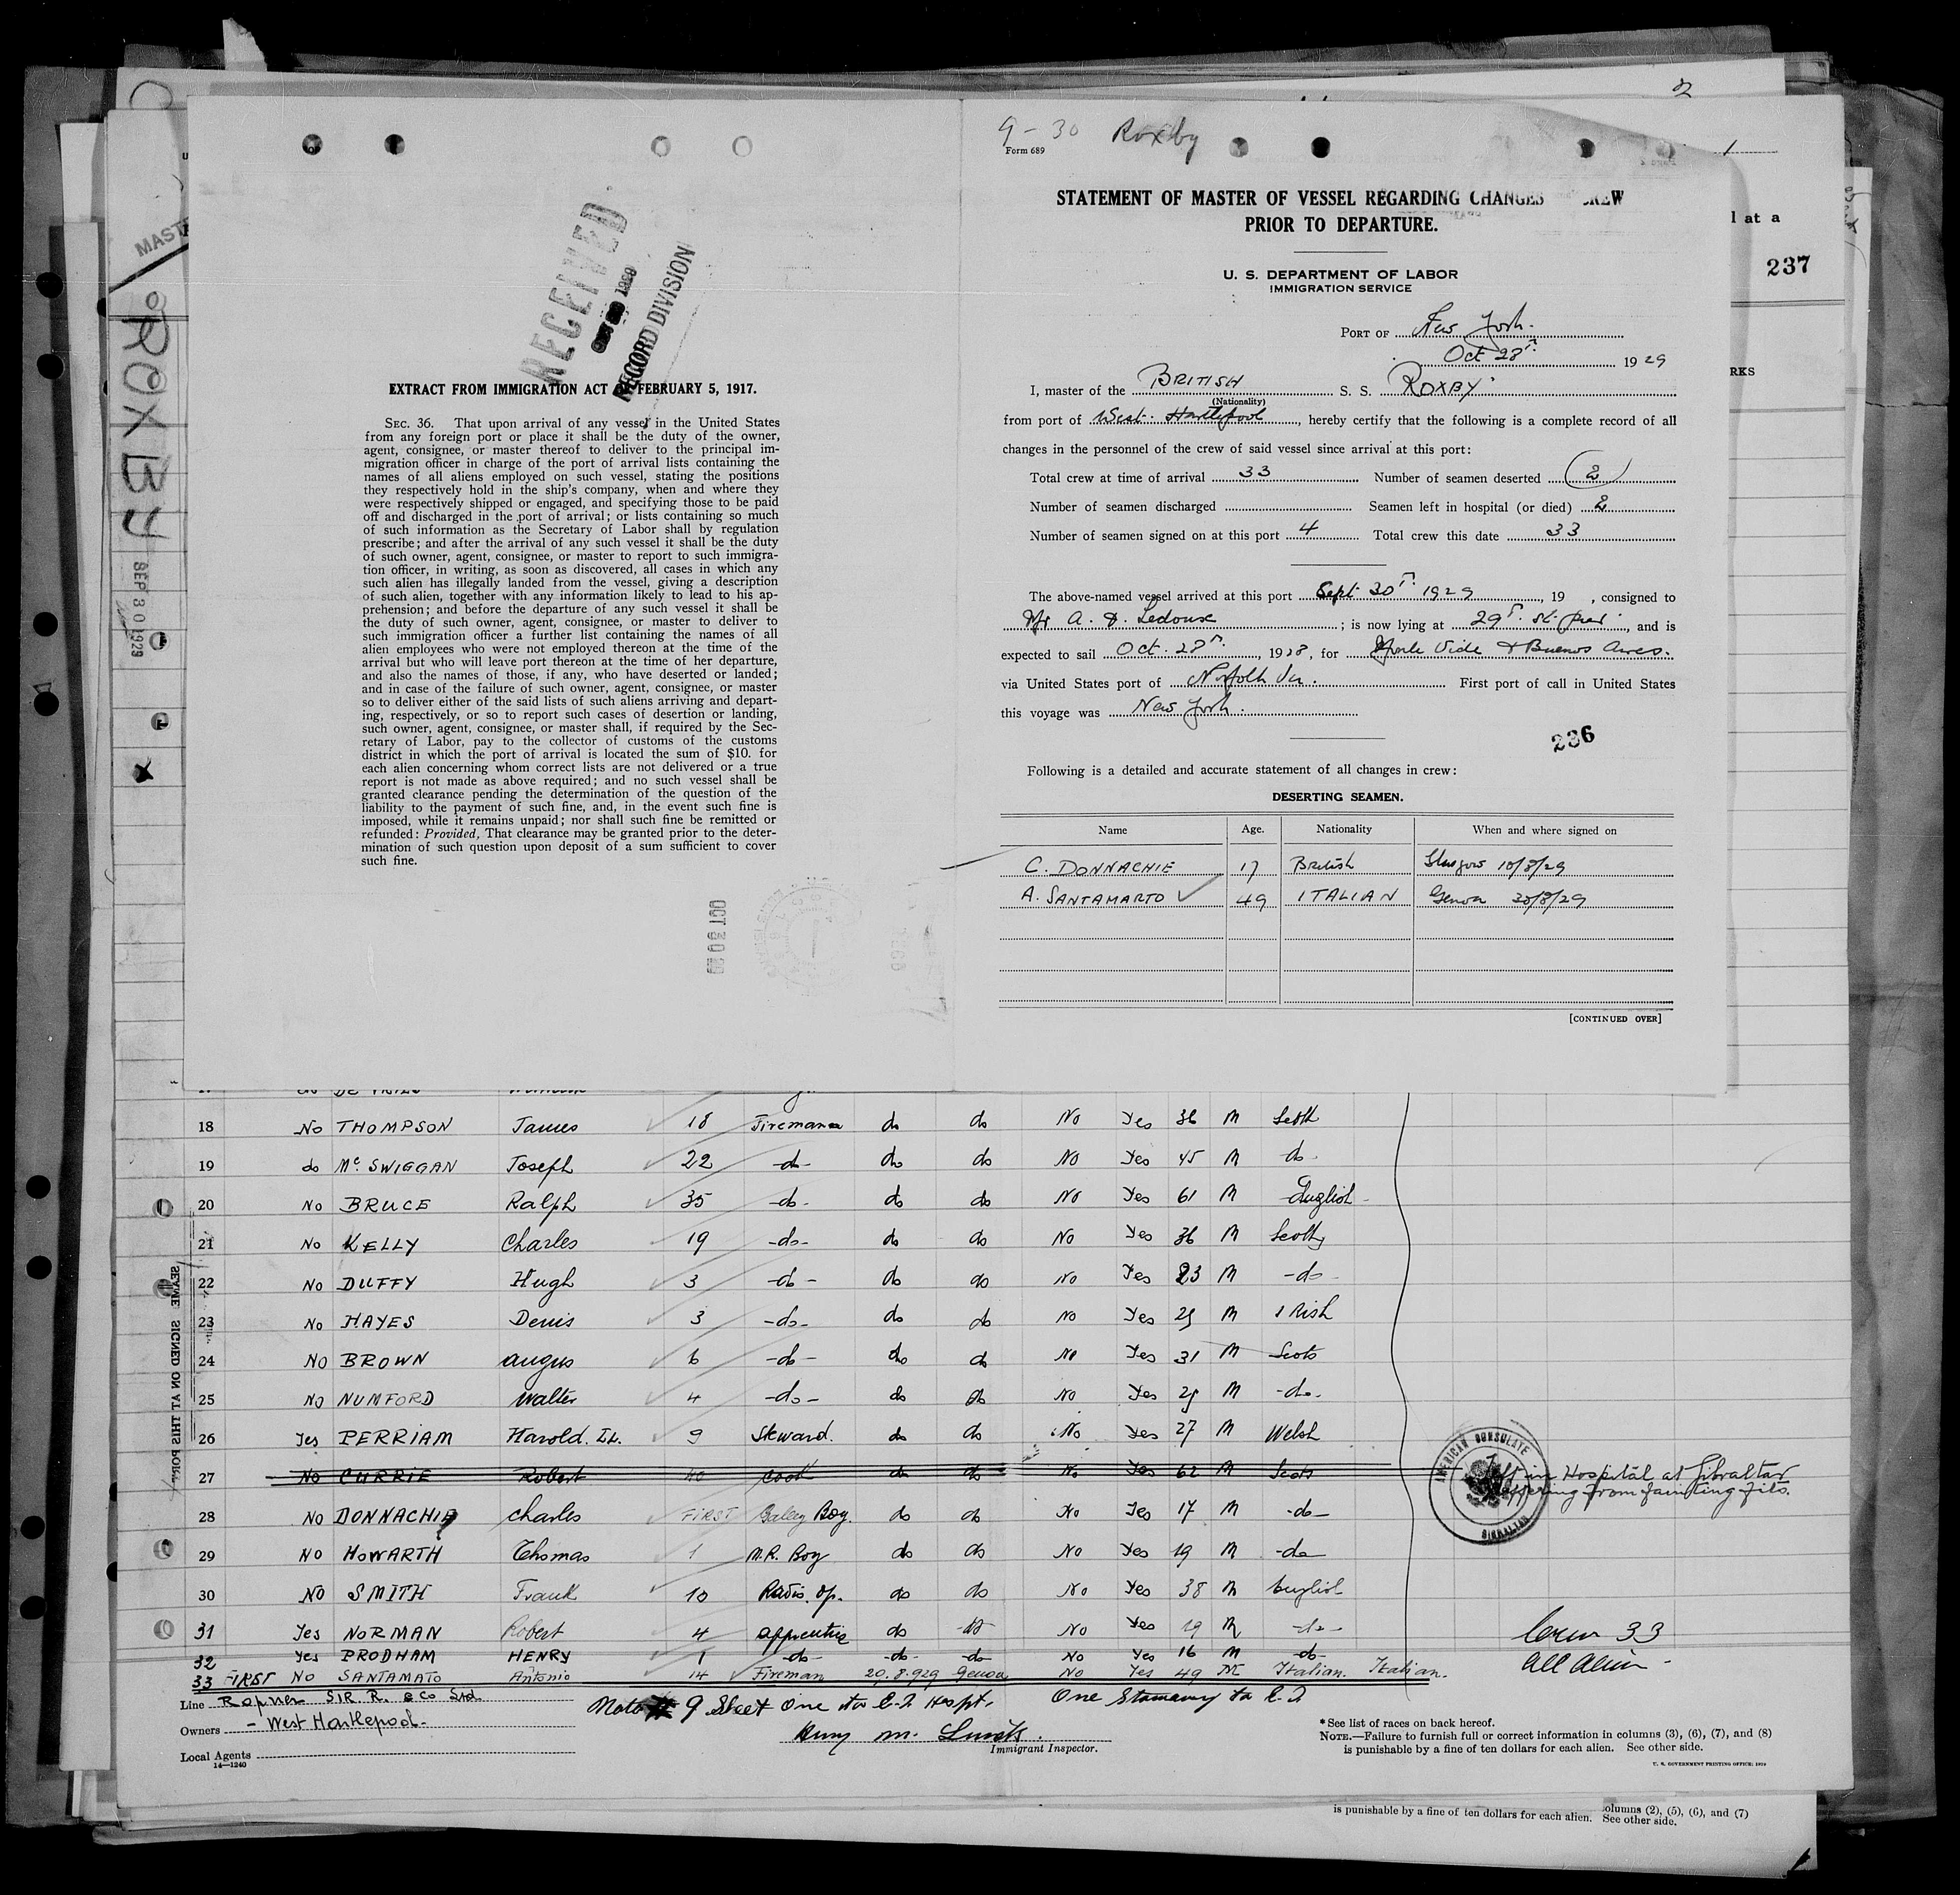 9-30 Roxby
Form 689
STATEMENT OF MASTER OF VESSEL REGARDING CHANGES CREW
PRIOR TO DEPARTURE.
U. S. DEPARTMENT OF LABOR
IMMIGRATION SERVICE
PORT OF New York.
Oct 28th 1929
I, master of the BRITISH S. S. ROXBY
(Nationality)
from port of West Hartlepool, hereby certify that the following is a complete record of all
changes in the personnel of the crew of said vessel since arrival at this port:
Total crew at time of arrival 33 Number of seamen deserted 2
Number of seamen discharged Seamen left in hospital (or died) 2
Number of seamen signed on at this port 4 Total crew this date 33
The above-named vessel arrived at this port Sept 30th 1929, 19 , consigned to
A. ; is now lying at 29th St. pier, and is
expected to sail Oct. 28th, 1928, for Monte Vide & Buenos Aires.
via United States port of Norfolk Va. First port of call in United States
this voyage was New York.
236
Following is a detailed and accurate statement of all changes in crew:
DESERTING SEAMEN.
Name Age. Nationality When and where signed on
C. DONNACHIE 17 British Glasgow 10/8/29
A. SANTAMARTO 49 ITALIAN Genoa 20/8/29
[CONTINUED OVER]
RECEIVED
1929
RECORD DIVISION
EXTRACT FROM IMMIGRATION ACT OF FEBRUARY 5, 1917.
SEC. 36. That upon arrival of any vessel in the United States
from any foreign port or place it shall be the duty of the owner,
agent, consignee, or master thereof to deliver to the principal im-
migration officer in charge of the port of arrival lists containing the
names of all aliens employed on such vessel, stating the positions
they respectively hold in the ship's company, when and where they
were respectively shipped or engaged, and specifying those to be paid
off and discharged in the port of arrival; or lists containing so much
of such information as the Secretary of Labor shall by regulation
prescribe; and after the arrival of any such vessel it shall be the duty
of such owner, agent, consignee, or master to report to such immigra-
tion officer, in writing, as soon as discovered, all cases in which any
such alien has illegally landed from the vessel, giving a description
of such alien, together with any information likely to lead to his ap-
prehension; and before the departure of any such vessel it shall be
the duty of such owner, agent, consignee, or master to deliver to
such immigration officer a further list containing the names of all
alien employees who were not employed thereon at the time of the
arrival but who will leave port thereon at the time of her departure,
and also the names of those, if any, who have deserted or landed;
and in case of the failure of such owner, agent, consignee, or master
so to deliver either of the said lists of such aliens arriving and depart-
ing, respectively, or so to report such cases of desertion or landing,
such owner, agent, consignee, or master shall, if required by the Sec-
retary of Labor, pay to the collector of customs of the customs
district in which the port of arrival is located the sum of $10. for
each alien concerning whom correct lists are not delivered or a true
report is not made as above required; and no such vessel shall be
granted clearance pending the determination of the question of the
liability to the payment of such fine, and, in the event such fine is
imposed, while it remains unpaid; nor shall such fine be remitted or
refunded: Provided, That clearance may be granted prior to the deter-
mination of such question upon deposit of a sum sufficient to cover
such fine.
OCT 30 29
MAST
ROXBY
SEP 30 1929
l at a
237
RKS
18 No THOMPSON James 18 Fireman do do No Yes 36 M Scotch
19 do McSWIGGAN Joseph 22 -do- do do No Yes 45 M do
20 No BRUCE Ralph 35 -do- do do No Yes 61 M English
21 No KELLY Charles 19 -do- do do No Yes 36 M Scotch
22 No DUFFY Hugh 3 -do- do do No Yes 23 M -do-
23 No HAYES Denis 3 -do- do do No Yes 25 M Irish
24 No BROWN Angus 6 -do- do do No Yes 31 M Scots
25 No NUMFORD Walter 4 -do- do do No Yes 25 M -do-
26 Yes PERRIAM Harold. 9 Steward. do do No Yes 27 M Welsh
27 No CURRIE Robert 40 Cook do do No Yes 62 M Scots Left in Hospital at Gibraltar
suffering from fainting fits.
AMERICAN CONSULATE
GIBRALTAR
28 No DONNACHIE Charles FIRST Galley Boy. do do No Yes 17 M -do-
29 No HOWARTH Thomas 1 M.R. Boy do do No Yes 19 M -do-
30 No SMITH Frank 10 Radio. Op. do do No Yes 38 M English
31 Yes NORMAN Robert 4 apprentice do do No Yes 19 M -do-
32 Yes PRODHAM HENRY 1 -do- -do- -do- No Yes 16 M -do-
33 FIRST NO SANTAMATO Antonio 14 Fireman 20.8.929 Genoa No Yes 49 M Italian. Italian.
Crew 33
All Alien
SEAME SIGNED ON AT THIS PORT.
Line Ropner SIR R. & Co Ltd
Owners - West Hartlepool-
Local Agents
14-1240
Note # 9 Sheet One to E.I. Hospt. One Stowaway to E.I.
Immigrant Inspector.
*See list of races on back hereof.
NOTE.—Failure to furnish full or correct information in columns (3), (6), (7), and (8)
is punishable by a fine of ten dollars for each alien. See other side.
U. S. GOVERNMENT PRINTING OFFICE: 1929
is punishable by a fine of ten dollars for each alien. olumns (2), (5), (6), and (7)
See other side.